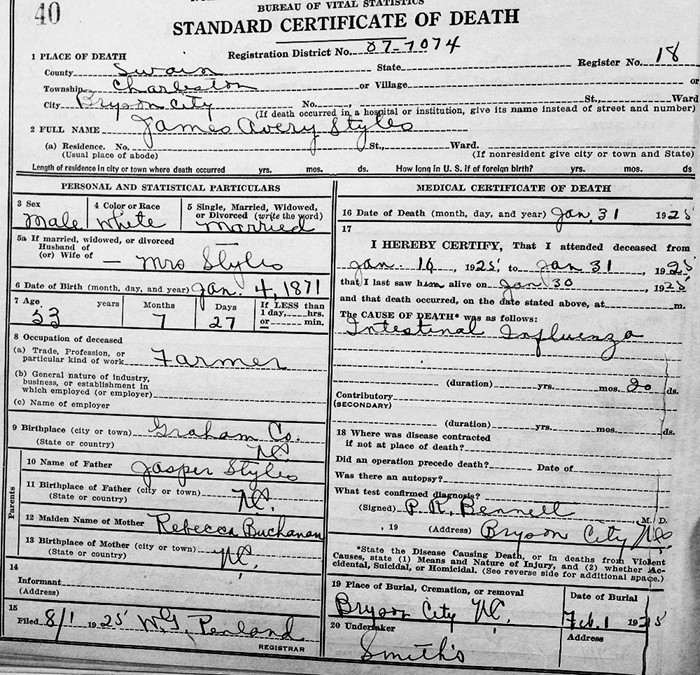 40
BUREAU OF VITAL STATISTICS
STANDARD CERTIFICATE OF DEATH
1 PLACE OF DEATH Registration District No. 87-7074 Register No. 18
County Swain State
Township Charleston or Village or
City Bryson City No. St., Ward
(If death occurred in a hospital or institution, give its name instead of street and number)
2 FULL NAME James Avery Styles
(a) Residence. No. St., Ward.
(Usual place of abode) (If nonresident give city or town and State)
Length of residence in city or town where death occurred yrs. mos. ds. How long in U. S. if of foreign birth? yrs. mos. ds.
PERSONAL AND STATISTICAL PARTICULARS
3 Sex 4 Color or Race 5 Single, Married, Widowed,
or Divorced (write the word)
Male White Married
5a If married, widowed, or divorced
Husband of
(or) Wife of — Mrs Styles
6 Date of Birth (month, day, and year) Jan. 4, 1871
7 Age years Months Days If LESS than
1 day, hrs.
or min.
53 7 27
8 Occupation of deceased
(a) Trade, Profession, or
particular kind of work Farmer
(b) General nature of industry,
business, or establishment in
which employed (or employer)
(c) Name of employer
9 Birthplace (city or town) Graham Co.
(State or country) NC
Parents
10 Name of Father Jasper Styles
11 Birthplace of Father (city or town)
(State or country) NC.
12 Maiden Name of Mother Rebecca Buchanan
13 Birthplace of Mother (city or town)
(State or country) NC.
14
Informant
(Address)
15
Filed 8/1 1925 W. T. Penland
REGISTRAR
MEDICAL CERTIFICATE OF DEATH
16 Date of Death (month, day, and year) Jan. 31 1925
17
I HEREBY CERTIFY, That I attended deceased from
Jan. 16, 1925 to Jan 31, 1925
that I last saw him alive on Jan 30, 1925
and that death occurred, on the date stated above, at m.
The CAUSE OF DEATH* was as follows:
Intestinal Influenza
(duration) yrs. mos. 20 ds.
Contributory
(SECONDARY)
(duration) yrs. mos. ds.
18 Where was disease contracted
if not at place of death?
Did an operation precede death? Date of
Was there an autopsy?
What test confirmed diagnosis?
(Signed) P. R. Bennett M. D.
, 19 (Address) Bryson City NC
*State the Disease Causing Death, or in deaths from Violent
Causes, state (1) Means and Nature of Injury, and (2) whether Ac-
cidental, Suicidal, or Homicidal. (See reverse side for additional space.)
19 Place of Burial, Cremation, or removal Date of Burial
Bryson City NC. Feb. 1 1925
20 Undertaker Address
Smith's